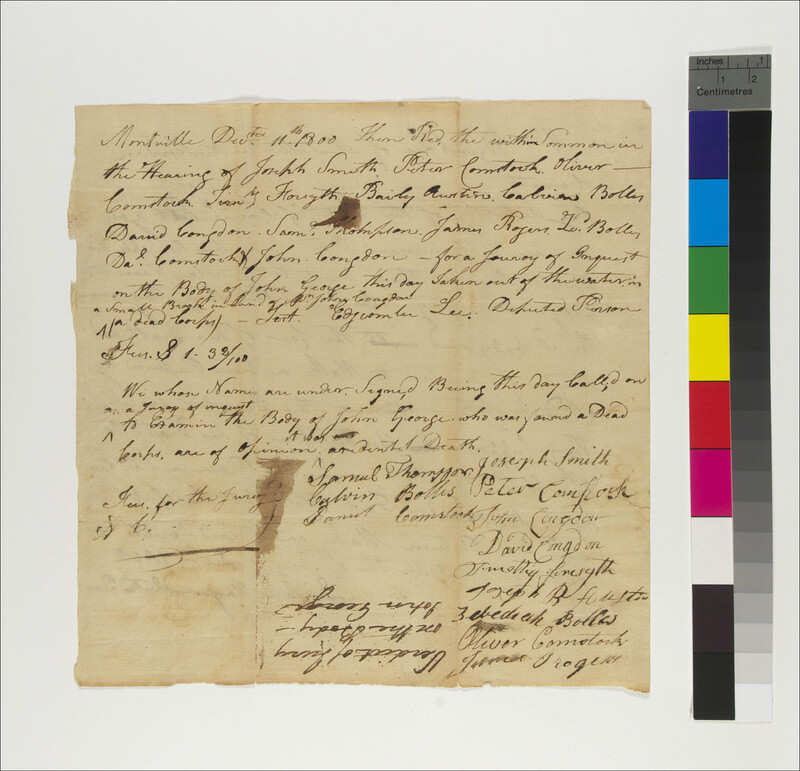 Montville Decbr 11th 1800 Then Red the within Sommon in
the Hearing of Joseph Smith Peter Comstock Oliver
Comstock Timy Forsyth Baily Austin Calvin Bolles
David Congdon Saml Thompson James Rogers Ze. Bolles
Dal Comstock & John Congdon – for a Jurey of Inquest
on the Body of John George this day Taken out of the water in
a Small Brook in Land of Mr John Congdon
(a dead Corps) – Test. Edgcombe Lee. Deputed Person
Fees. $ 1 - 39/100
We whose Names are under, Signed Being this day Called on
as a Jurey of inquest
to Examin the Body of John George who was found a Dead
it was
Corps, are of Opinion accidental Death.
Samuel Thompson Joseph Smith
Fees. for the Jurey Calvin Bolles Peter Comstock
$ 6. Daniel Comstock John Congdon
David Congdon
Timothy Forsyth
Joseph B Austin
Zebediah Bolles
Oliver Comstock
James Rogers
Verdict of Jury
on the Body –
John George